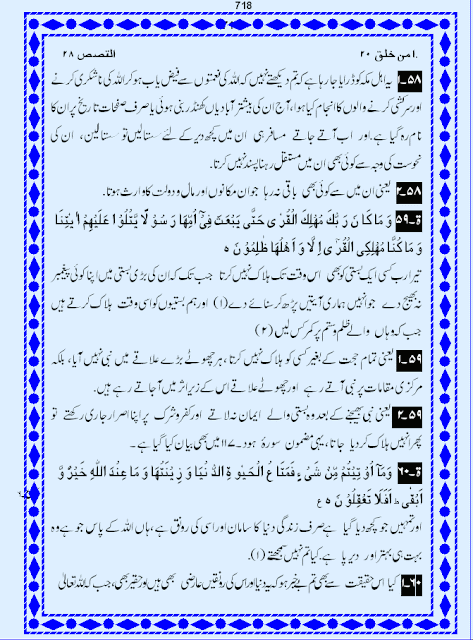 718
امن خلق ۲۰
القصص ۲۸
۵۸۔۱ یہ اہل مکہ کو ڈرایا جا رہا ہے کہ تم دیکھتے نہیں کہ اللہ کی نعمتوں سے فیض یاب ہو کر اللہ کی ناشکری کرنے
اور سرکشی کرنے والوں کا انجام کیا ہوا، آج ان کی بیشتر آبادیاں کھنڈر بنی ہوئی یا صرف صفحات تاریخ پر ان کا
نام رہ گیا ہے۔ اور اب آتے جاتے مسافر ہی ان میں کچھ دیر کے لئے سستالیں تو سستالیں، ان کی
نحوست کی وجہ سے کوئی بھی ان میں مستقل رہنا پسند نہیں کرتا۔
۵۸۔۲ یعنی ان میں سے کوئی بھی باقی نہ رہا جو ان مکانوں اور مال و دولت کا وارث ہوتا۔
ة۔۵۹ وَ مَا كَا نَ رَ بُّكَ مُهْلِكَ الْقُرٰ ى حَتّٰى يَبْعَثَ فِىْٓ اُمِّهَا رَ سُوْ لًا يَّتْلُوْا عَلَيْهِمْ اٰ يٰتِنَا
وَ مَا كُنَّا مُهْلِكِى الْقُرٰ ٓى اِ لَّا وَ اَهْلُهَا ظٰلِمُوْ نَ ہ
تیرا رب کسی ایک بستی کو بھی اس وقت تک ہلاک نہیں کرتا جب تک کہ ان کی بڑی بستی میں اپنا کوئی پیغمبر
نہ بھیج دے جو انہیں ہماری آیتیں پڑھ کر سنائے دے (۱) اور ہم بستیوں کو اسی وقت ہلاک کرتے ہیں
جب کہ وہاں والے ظلم و ستم پر کمر کس لیں (۲)
۵۹۔۱ یعنی تمام حجت کے بغیر کسی کو ہلاک نہیں کرتا، ہر چھوٹے بڑے علاقے میں نبی نہیں آیا، بلکہ
مرکزی مقامات پر نبی آتے رہے اور چھوٹے علاقے اس کے زیر اثر میں آجاتے رہے ہیں۔
۵۹۔۲ یعنی نبی بھیجنے کے بعد وہ بستی والے ایمان نہ لاتے اور کفر و شرک پر اپنا اصرار جاری رکھتے تو
پھر انہیں ہلاک کر دیا جاتا، یہی مضمون سورۂ ہود۔۱۱۷ میں بھی بیان کیا گیا ہے۔
ة۔۶۰ وَ مَآ اُوْ تِيْتُمْ مِّنْ شَىْ ءٍ فَمَتَا عُ الْحَيٰو ةِ الدُّ نْيَا وَ زِ يْنَتُهَا وَ مَا عِنْدَ اللّٰهِ خَيْرٌ وَّ
اَبْقٰى ط اَفَلَا تَعْقِلُوْ نَ ہ ع
اور تمہیں جو کچھ دیا گیا ہے صرف زندگی دنیا کا سامان اور اسی کی رونق ہے، ہاں اللہ کے پاس جو ہے وہ
بہت ہی بہتر اور دیرپا ہے۔ کیا تم نہیں سمجھتے (۱)۔
۶۰۔۱ کیا اس حقیقت سے بھی تم بے خبر ہو کہ یہ دنیا اور اس کی رونقیں عارضی بھی ہیں اور حقیر بھی، جب کہ اللہ تعالیٰ